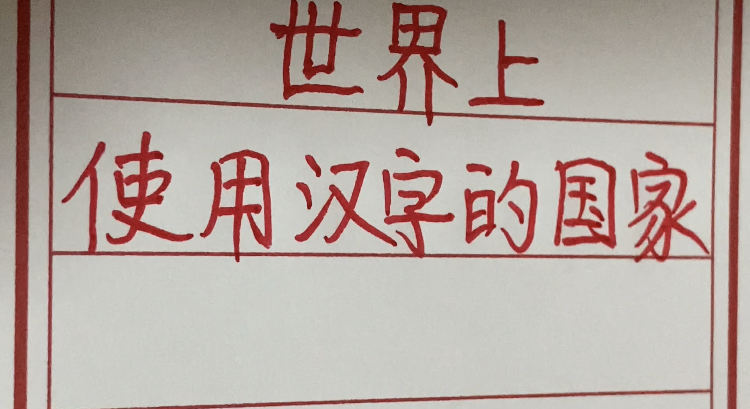 世界上
使用汉字的国家